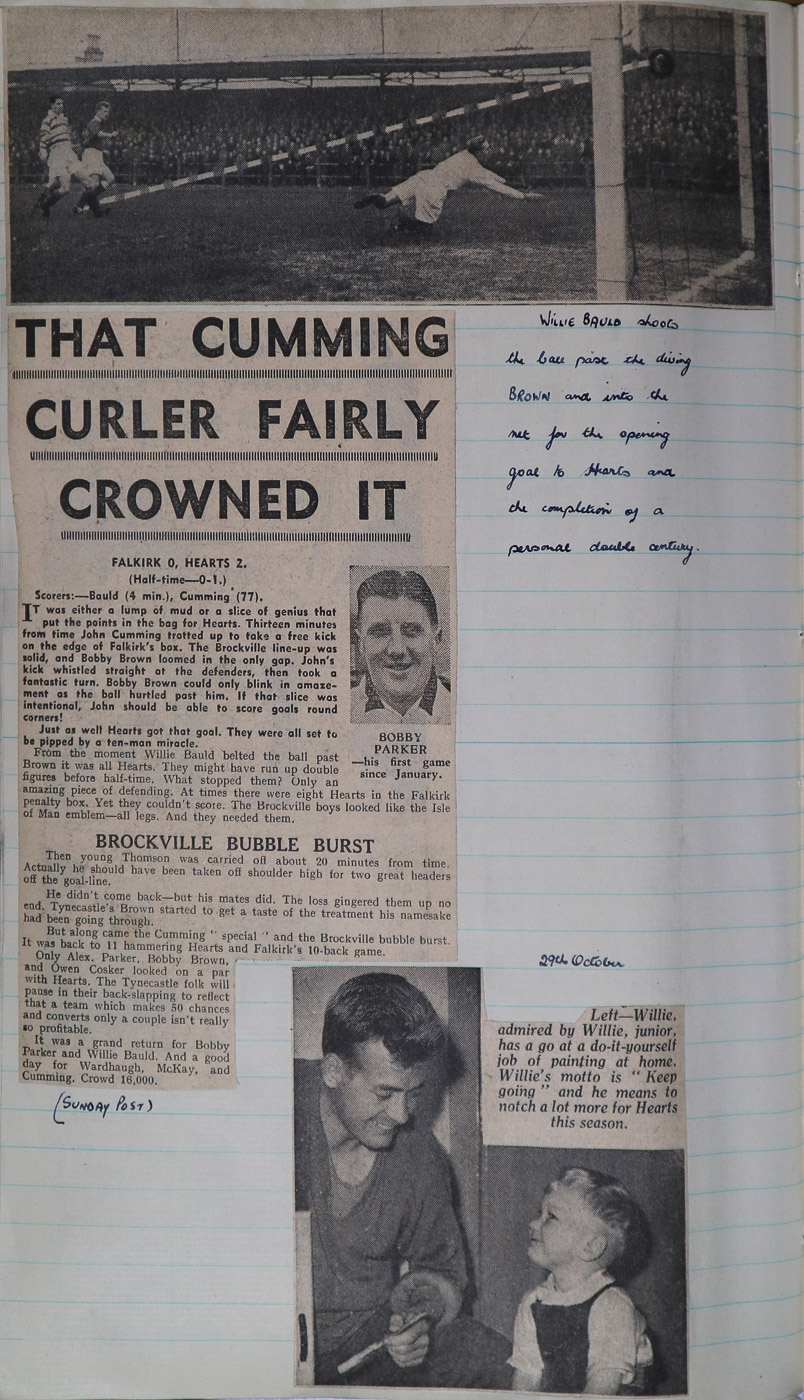 WILLIE BAULD shoots
the ball past the diving
BROWN and into the
net for the opening
goal to Hearts and
the completion of a
personal double century.
THAT CUMMING
CURLER FAIRLY
CROWNED IT
FALKIRK 0, HEARTS 2.
(Half-time—0-1.)
Scorers:—Bauld (4 min.), Cumming (77).
IT was either a lump of mud or a slice of genius that
put the points in the bag for Hearts. Thirteen minutes
from time John Cumming trotted up to take a free kick
on the edge of Falkirk's box. The Brockville line-up was
solid, and Bobby Brown loomed in the only gap. John's
kick whistled straight at the defenders, then took a
fantastic turn. Bobby Brown could only blink in amaze-
ment as the ball hurtled past him. If that slice was
intentional, John should be able to score goals round
corners!
Just as well Hearts got that goal. They were all set to
be pipped by a ten-man miracle.
From the moment Willie Bauld belted the ball past
Brown it was all Hearts. They might have run up double
figures before half-time. What stopped them? Only an
amazing piece of defending. At times there were eight Hearts in the Falkirk
penalty box. Yet they couldn't score. The Brockville boys looked like the Isle
of Man emblem—all legs. And they needed them.
BOBBY
PARKER
—his first game
since January.
BROCKVILLE BUBBLE BURST
Then young Thomson was carried off about 20 minutes from time.
Actually he should have been taken off shoulder high for two great headers
off the goal-line.
He didn't come back—but his mates did. The loss gingered them up no
end. Tynecastle's Brown started to get a taste of the treatment his namesake
had been going through.
But along came the Cumming " special " and the Brockville bubble burst.
It was back to 11 hammering Hearts and Falkirk's 10-back game.
Only Alex. Parker, Bobby Brown,
and Owen Cosker looked on a par
with Hearts. The Tynecastle folk will
pause in their back-slapping to reflect
that a team which makes 50 chances
and converts only a couple isn't really
so profitable.
It was a grand return for Bobby
Parker and Willie Bauld. And a good
day for Wardhaugh, McKay, and
Cumming. Crowd 16,000.
(SUNDAY POST)
29th October
Left—Willie,
admired by Willie, junior,
has a go at a do-it-yourself
job of painting at home.
Willie's motto is " Keep
going " and he means to
notch a lot more for Hearts
this season.